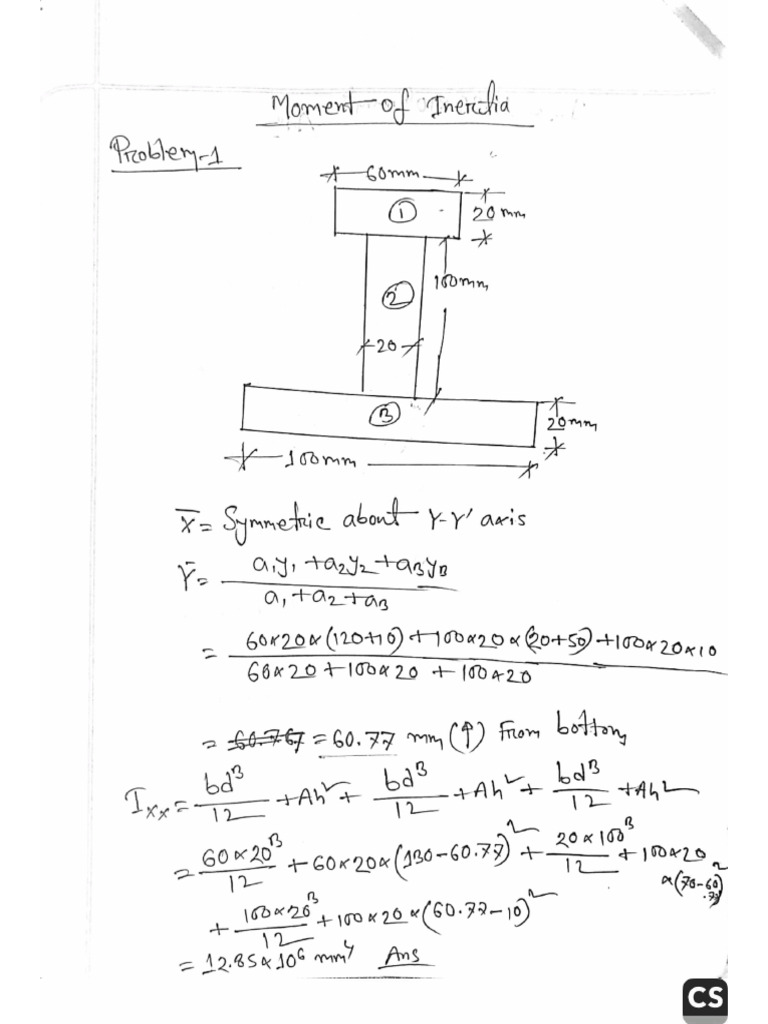 Moment of Inertia
Problem-1
60mm
① 20 mm
② 100mm
20
③ 20mm
100mm
X̄ = Symmetric about Y-Y' axis
Ȳ = (a₁y₁ + a₂y₂ + a₃y₃) / (a₁ + a₂ + a₃)
= (60×20×(120+10) + 100×20×(20+50) + 100×20×10) / (60×20 + 100×20 + 100×20)
= 60.767 = 60.77 mm (↑) From bottom
Ixx = bd³/12 + Ah² + bd³/12 + Ah² + bd³/12 + Ah²
= 60×20³/12 + 60×20×(130-60.77)² + 20×100³/12 + 100×20 ×(70-60.77)²
+ 100×20³/12 + 100×20×(60.77-10)²
= 12.85×10⁶ mm⁴ Ans
CS